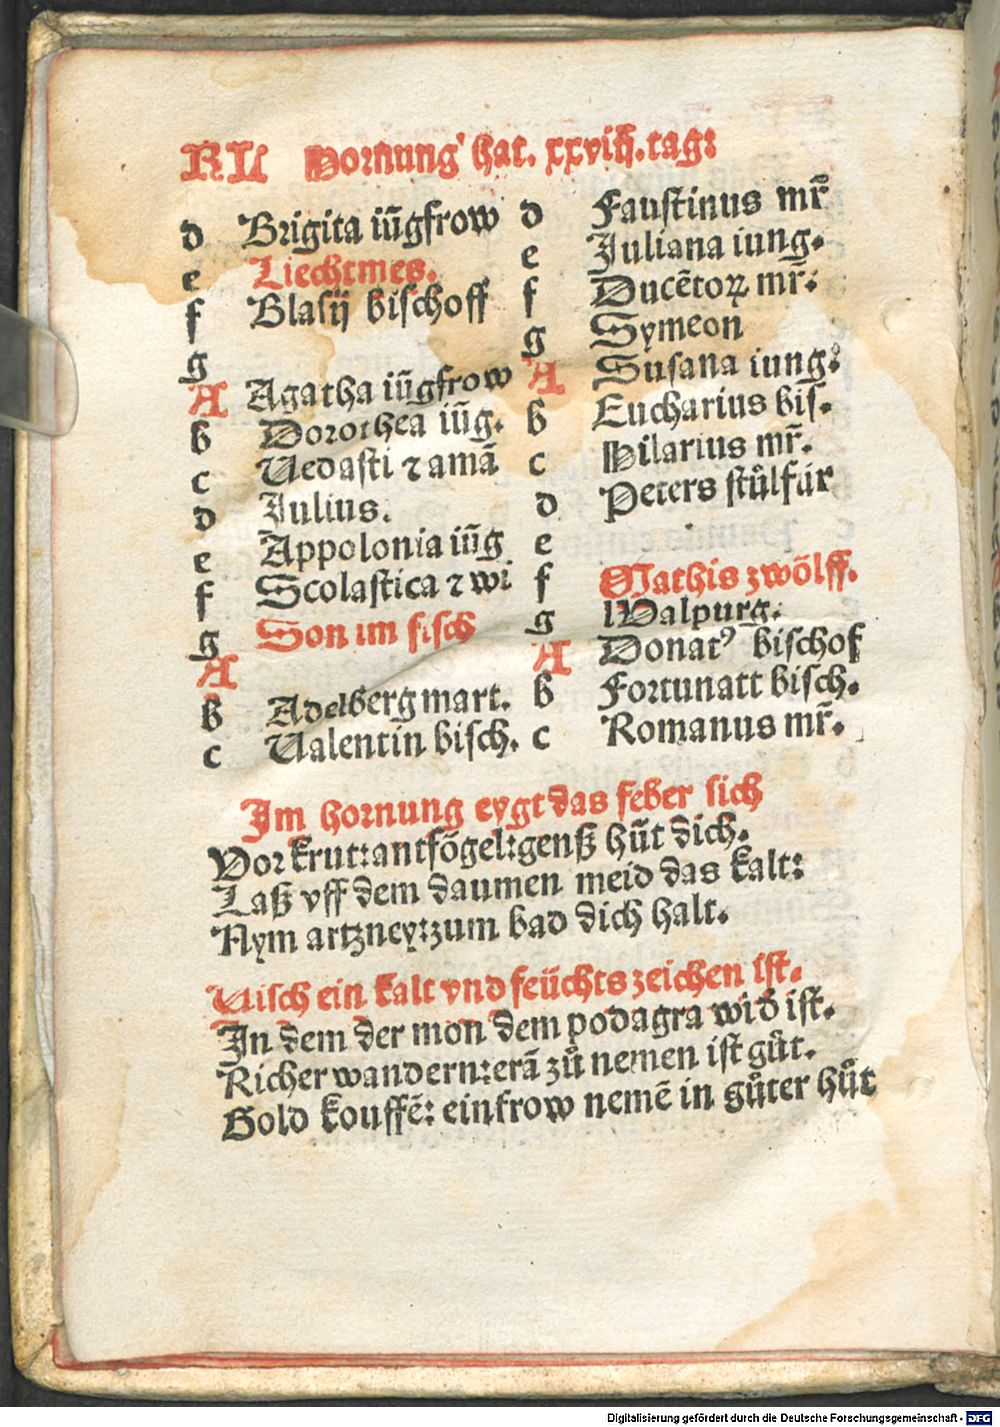 KL Hornung hat. xxviij. tag:
d Brigita iūgfrow
e Liechtmes.
f Blasij bischoff
g
A Agatha iūgfrow
b Dorothea iūg.
c Uedasti ⁊ amā
d Julius.
e Appolonia iūg
f Scolastica ⁊ wi
g Son im fisch
A
b Adelberg mart.
c Ualentin bisch.
d Faustinus mr̄
e Juliana iung.
f Ducētoꝝ mr̄:
g Symeon
A Susana iung:
b Eucharius bis.
c Hilarius mr̄.
d Peters stůlfür
e
f Mathis zwölff.
g Walpurg.
A Donatꝰ bischof
b Fortunatt bisch.
c Romanus mr̄.
Im hornung eygt das feber sich
Vor krut: antfögel: genß hůt dich.
Laß vff dem daumen meid das kalt:
Nym artzney: zum bad dich halt.
Uisch ein kalt vnd feüchts zeichen ist.
In dem der mon dem podagra wid ist.
Richer wandern: erā zů nemen ist gůt.
Gold kouffē: ein frow nemē in gůter hůt
Digitalisierung gefördert durch die Deutsche Forschungsgemeinschaft - DFG